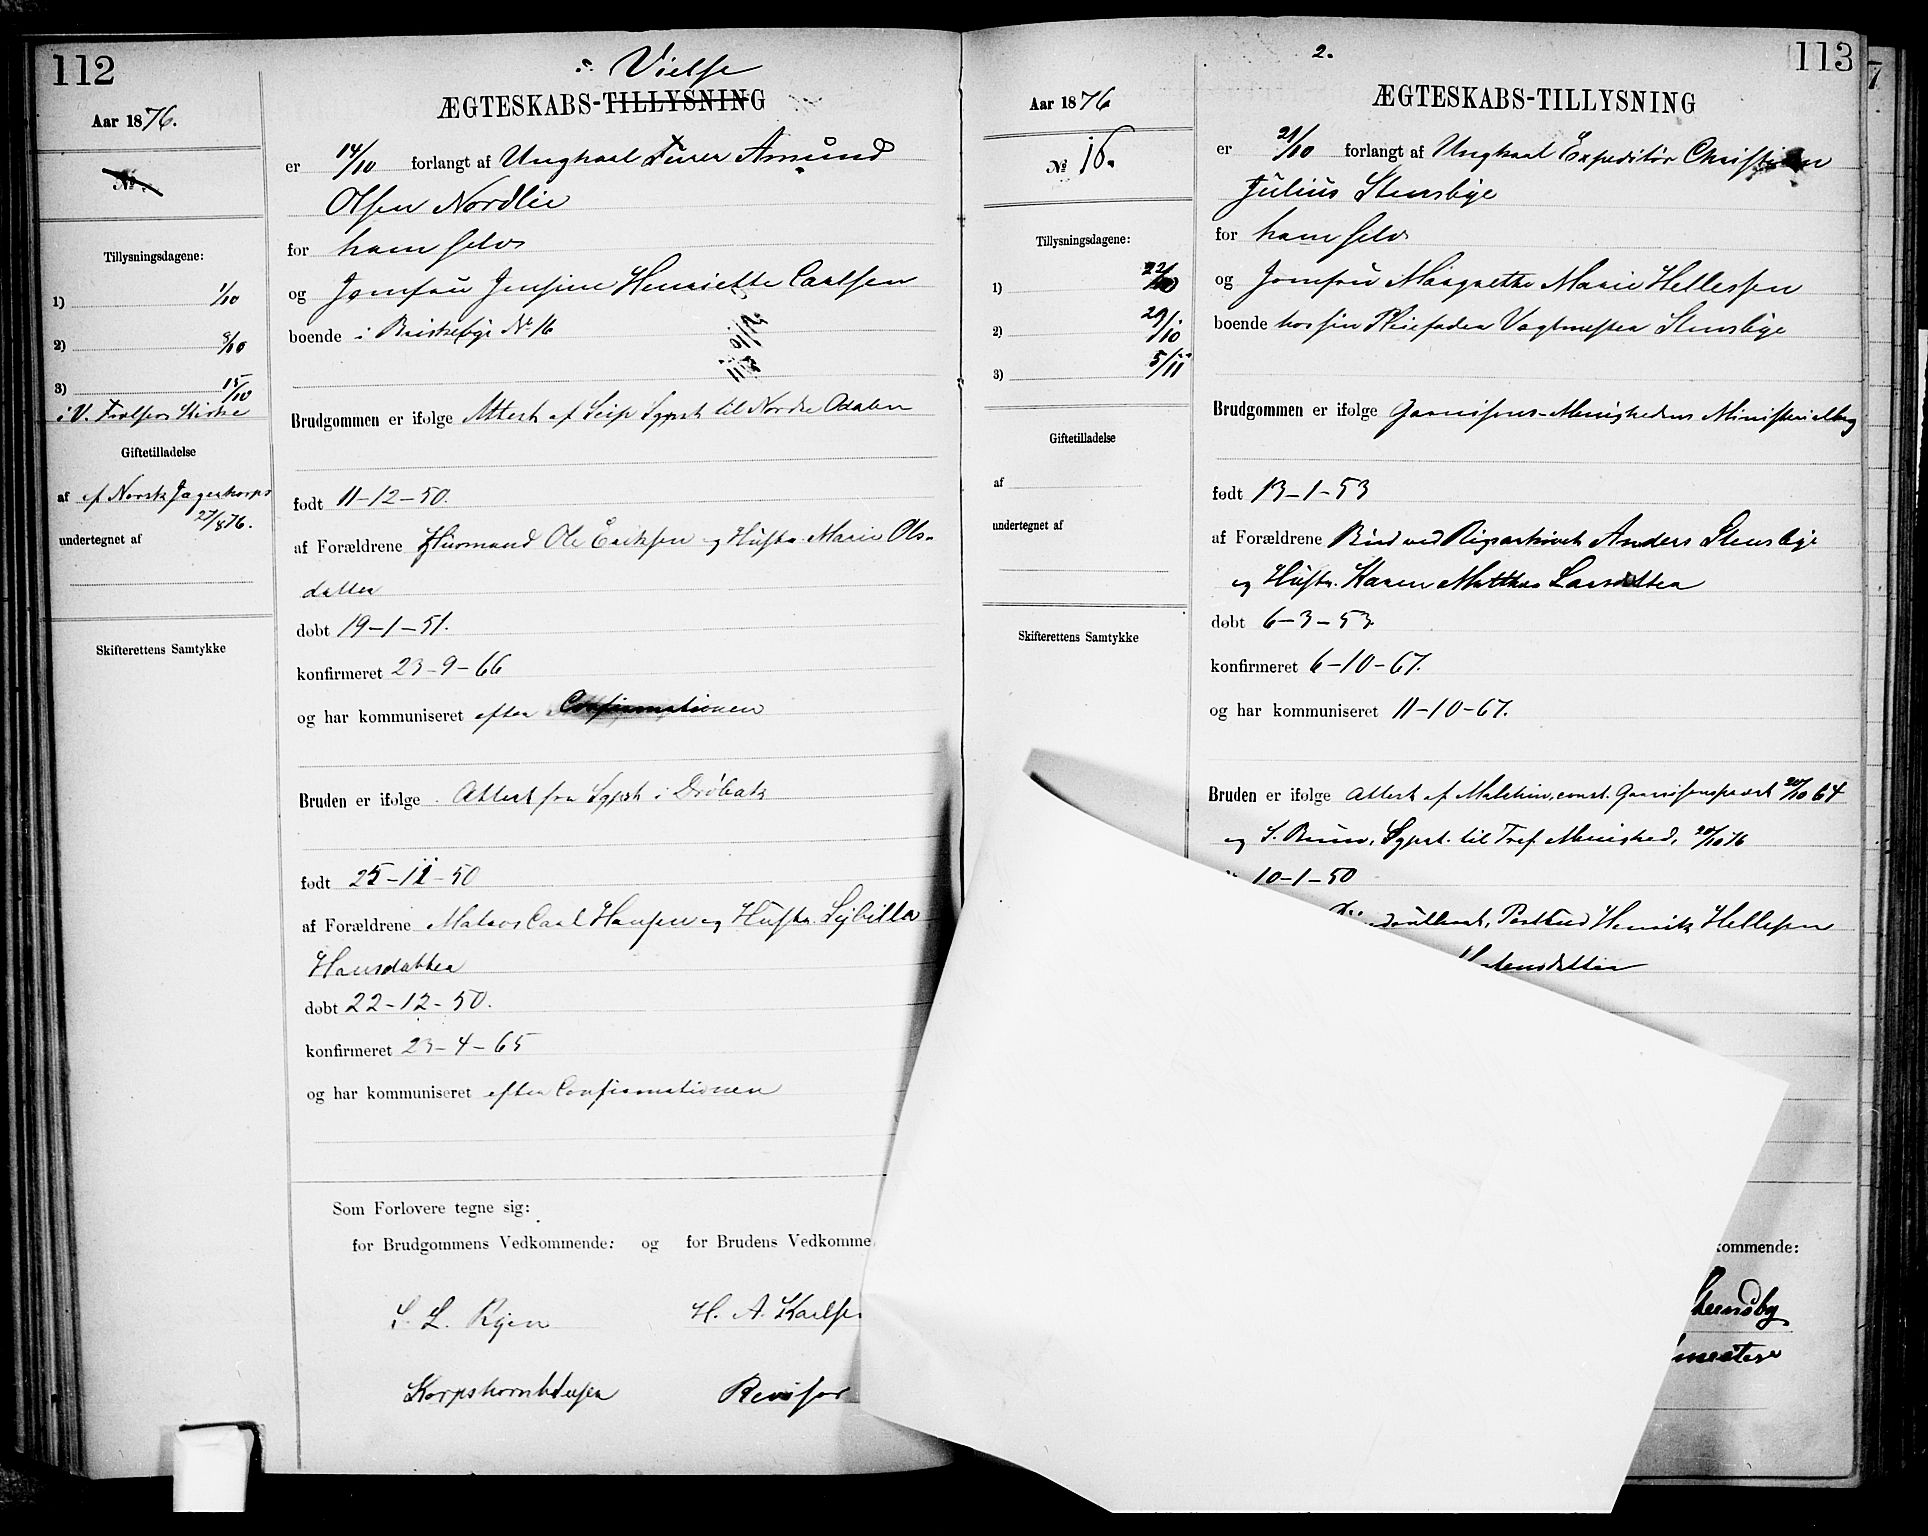 112
Vielse
ÆGTESKABS-TILLYSNING
Aar 1876.
№
er 14/10 forlangt af Ungkarl Furer Amund
Olsen Nordlie
for ham selv
og Jomfru Jensine Henriette Carlsen
boende i Briskebye № 16
Tillysningsdagene:
1) 1/10
2) 8/10
3) 15/10
i V. Trefols Kirke
Giftetilladelse
af af Norsk Jægerkorps
27/8 76.
undertegnet af
Skifterettens Samtykke
Brudgommen er ifølge Attest af Seip Sgprst til Nordre Odalen
født 11-12-50.
af Forældrene Huusmand Ole Eriksen og Hustr. Marie Ols-
datter
døbt 19-1-51.
konfirmeret 23-9-66
og har kommuniseret efter Confirmationen
Bruden er ifølge Attest fra Sgprst i Drøbak
født 25-11-50
af Forældrene Matros Carl Hansen og Hustr. Sybilla
Hansdatter
døbt 22-12-50.
konfirmeret 23-4-65
og har kommuniseret efter Confirmationen
Som Forlovere tegne sig:
for Brudgommens Vedkommende: og for Brudens Vedkomme
S. L. Rgen
H. A. Karlse
Revisor
2.
113
ÆGTESKABS-TILLYSNING
Aar 1876
№ 16.
er 21/10 forlangt af Ungkarl Expeditør Christian
Julius Stensbye
for ham selv
og Jomfru Margrethe Marie Hellessen
boende hos sin Pleiefader Vagtmester Stensbye
Tillysningsdagene:
1) 22/10
2) 29/10
3) 5/11
Giftetilladelse
af
undertegnet af
Skifterettens Samtykke
Brudgommen er ifølge Garnisons-Menighedens Ministerialbog
født 13-1-53
af Forældrene Bud ved Rigsarkivet Anders Stensbye
og Hustr. Karen Mathea Larsdatter
døbt 6-3-53
konfirmeret 6-10-67.
og har kommuniseret 11-10-67.
Bruden er ifølge Attest af Malthin, const. Garnisonspræst 20/10 64
og S. Bruun, Sgprst. til Tref. Menighed, 20/10 76
10-1-50
Postbud Henrik Hellesen
kommende: